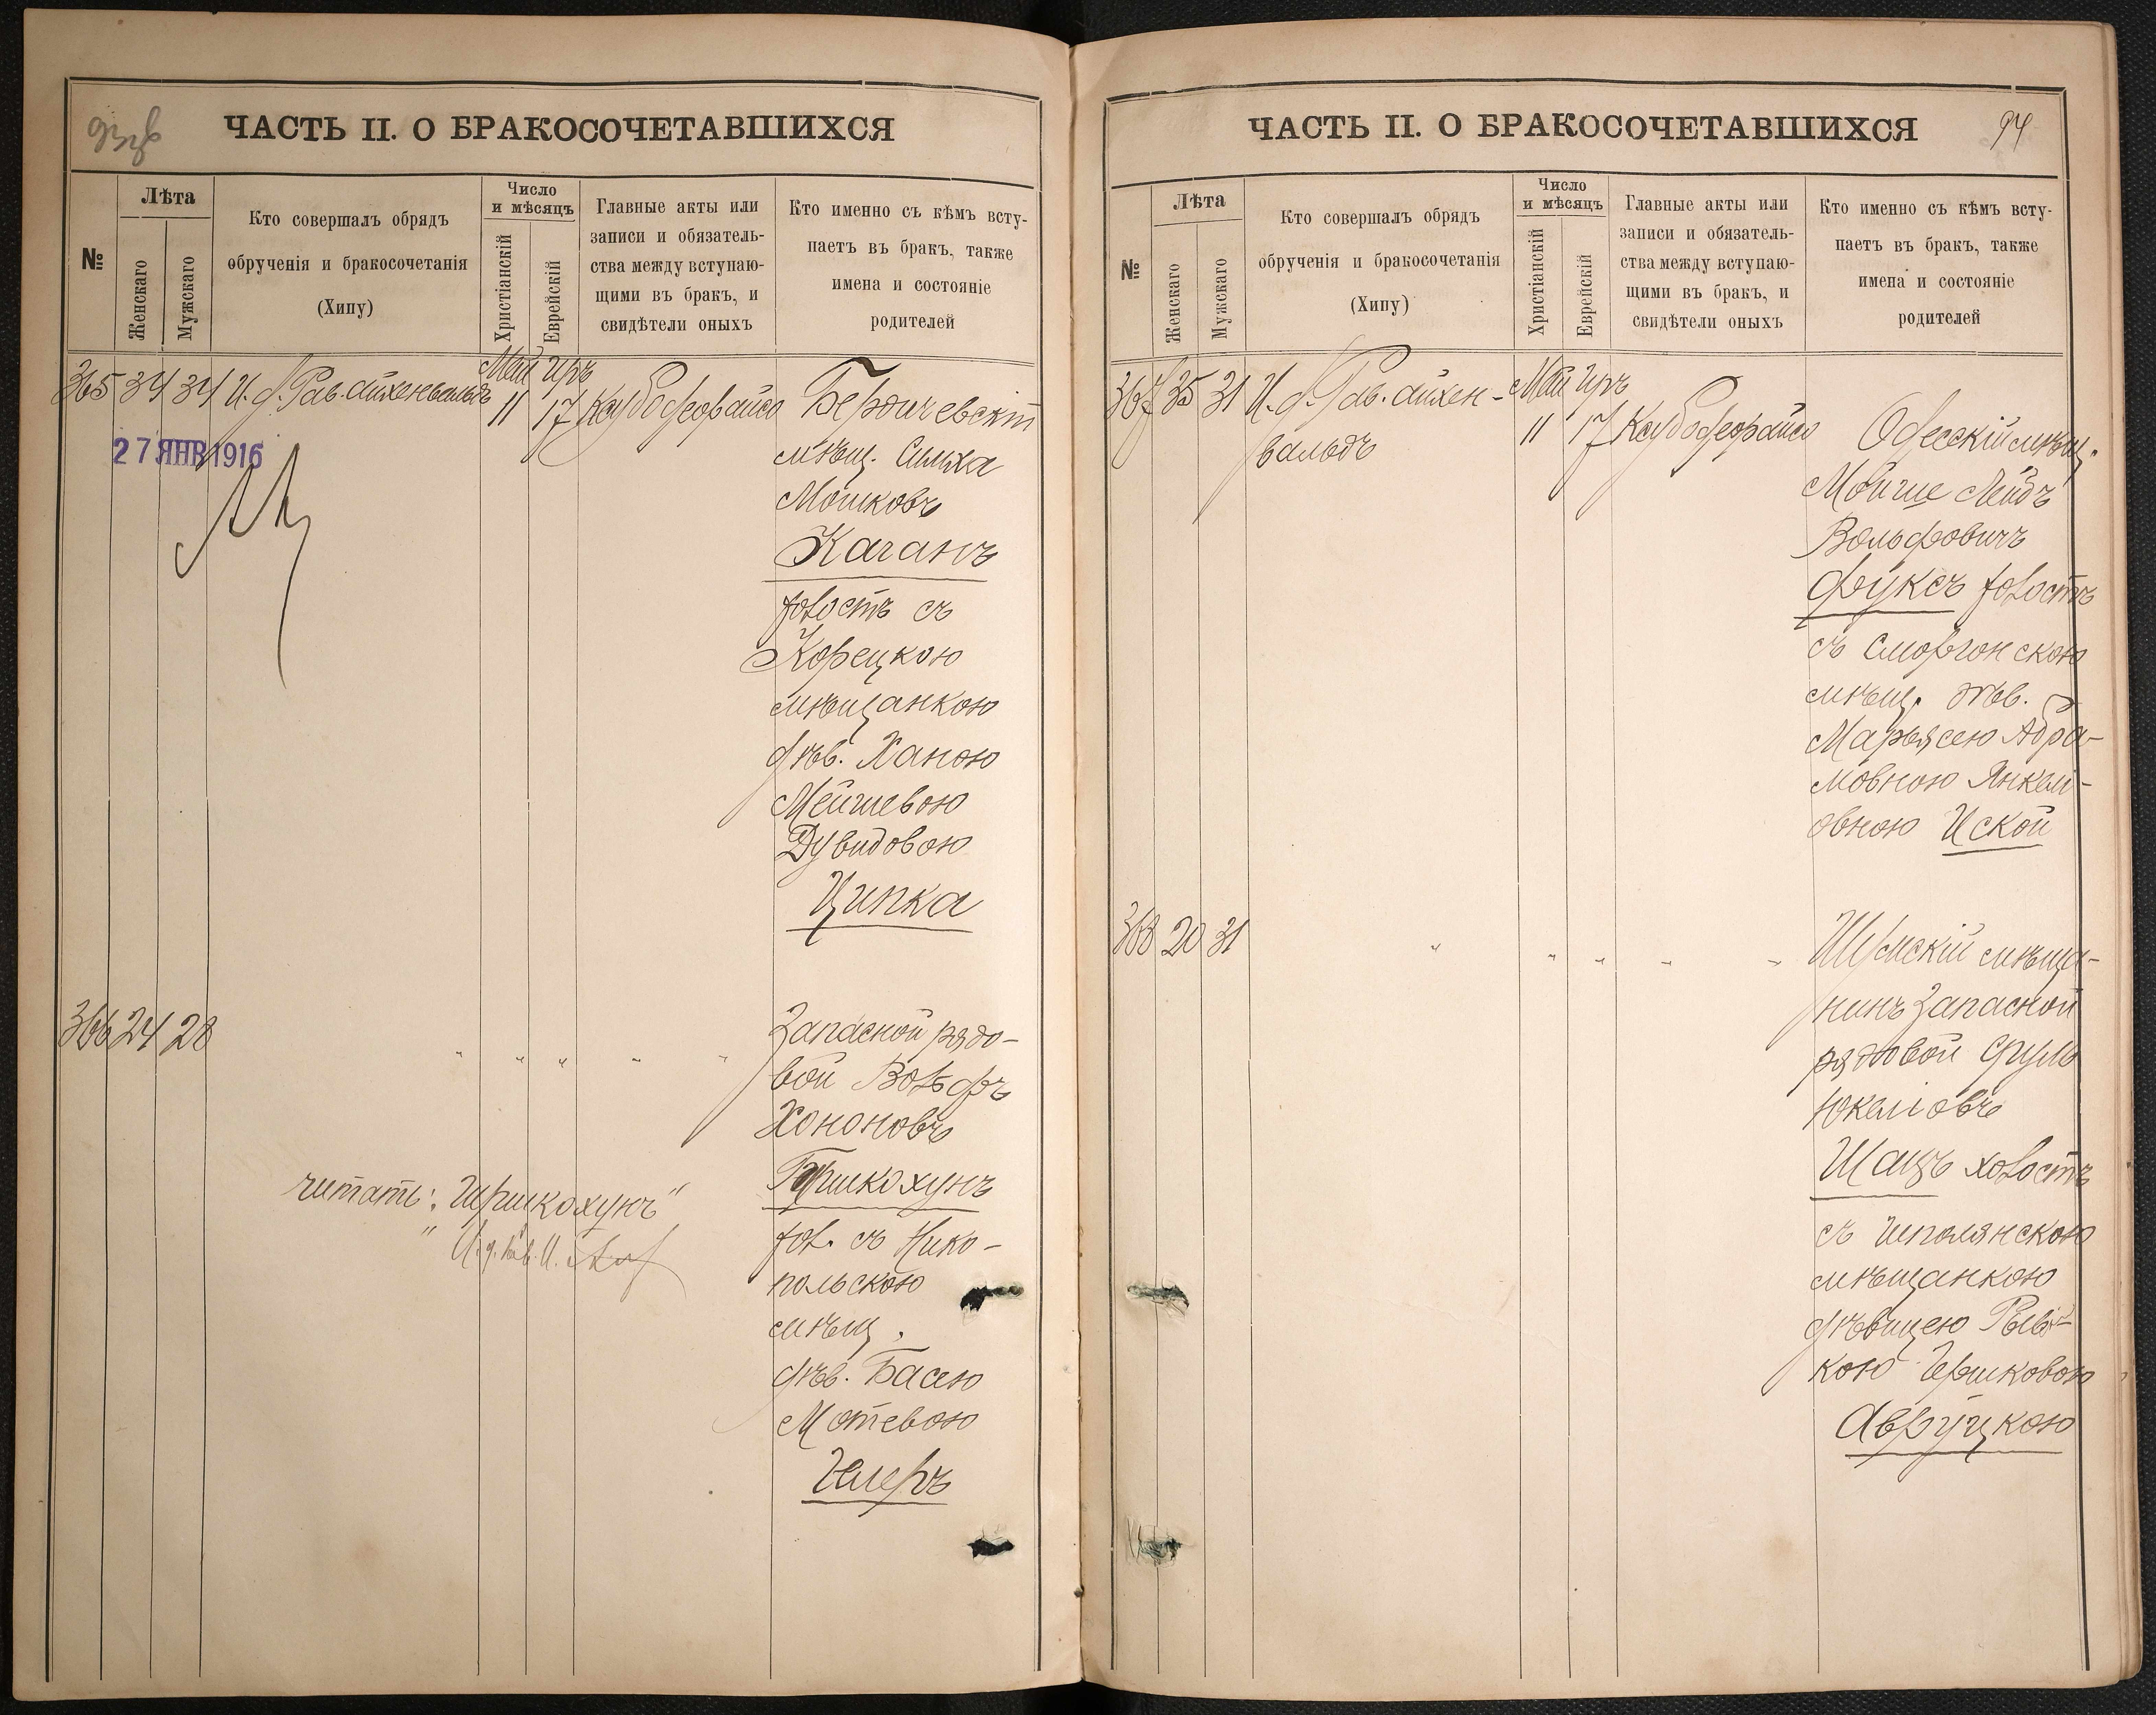 ЧАСТЬ II. О БРАКОСОЧЕТАВШИХСЯ
№
Лѣта
Женскаго
Мужскаго
Кто совершалъ обрядъ
обрученія и бракосочетанія
(Хипу)
Число
и мѣсяцъ
Христіанскій
Еврейскій
Главные акты или
записи и обязатель-
ства между вступаю-
щими въ бракъ, и
свидѣтели оныхъ
Кто именно съ кѣмъ всту-
паетъ въ бракъ, также
имена и состояніе
родителей
365 34 34 И. д. Рав. Айхенвальдъ
Май Иръ
11 17
Бердичевскій
мѣщ. Симха
Мошковъ
Каганъ
холостъ съ
Корецкою
мѣщанкою
дѣв. Ханою
Мейшевою
Дувидовою
Ципка
27 ЯНВ 1916
366 24 28 " " " " "
Запасной рядо-
вой Вольфъ
Хононовъ
Гершкохунъ
хол. съ Нико-
польскою
мѣщ.
дѣв. Басею
Мотевою
читать: "Гершкохунъ"
ЧАСТЬ II. О БРАКОСОЧЕТАВШИХСЯ
94
№
Лѣта
Женскаго
Мужскаго
Кто совершалъ обрядъ
обрученія и бракосочетанія
(Хипу)
Число
и мѣсяцъ
Христіанскій
Еврейскій
Главные акты или
записи и обязатель-
ства между вступаю-
щими въ бракъ, и
свидѣтели оныхъ
Кто именно съ кѣмъ всту-
паетъ въ бракъ, также
имена и состояніе
родителей
367 35 31 И. д. Рав. Айхен-
вальдъ
Май Иръ
11 17
Одесскій мѣщ.
Мойше Лейбъ
Вольфовичъ
Фуксъ холостъ
съ Сморгонскою
мѣщ. дѣв.
Марьясею Абра-
мовною Янкели-
овною Иской
368 20 31 " " " " "
Шумскій мѣща-
нинъ Запасной
рядовой Сруль
Юкеліовъ
Шацъ холостъ
съ Шполянскою
мѣщанкою
дѣвицею Рыв-
кою Гершковою
Авруцкою